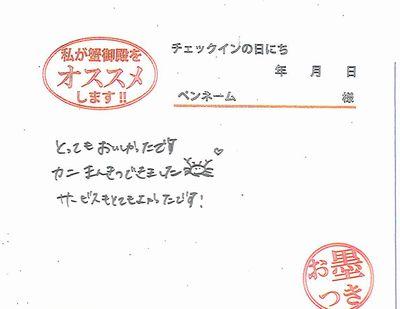 私が蟹御殿を
オススメ
します!!
チェックインの日にち
年 月 日
ペンネーム 様
とってもおいしかったです
カニまんきつできました
サービスもとてもよかったです!
お墨
つき